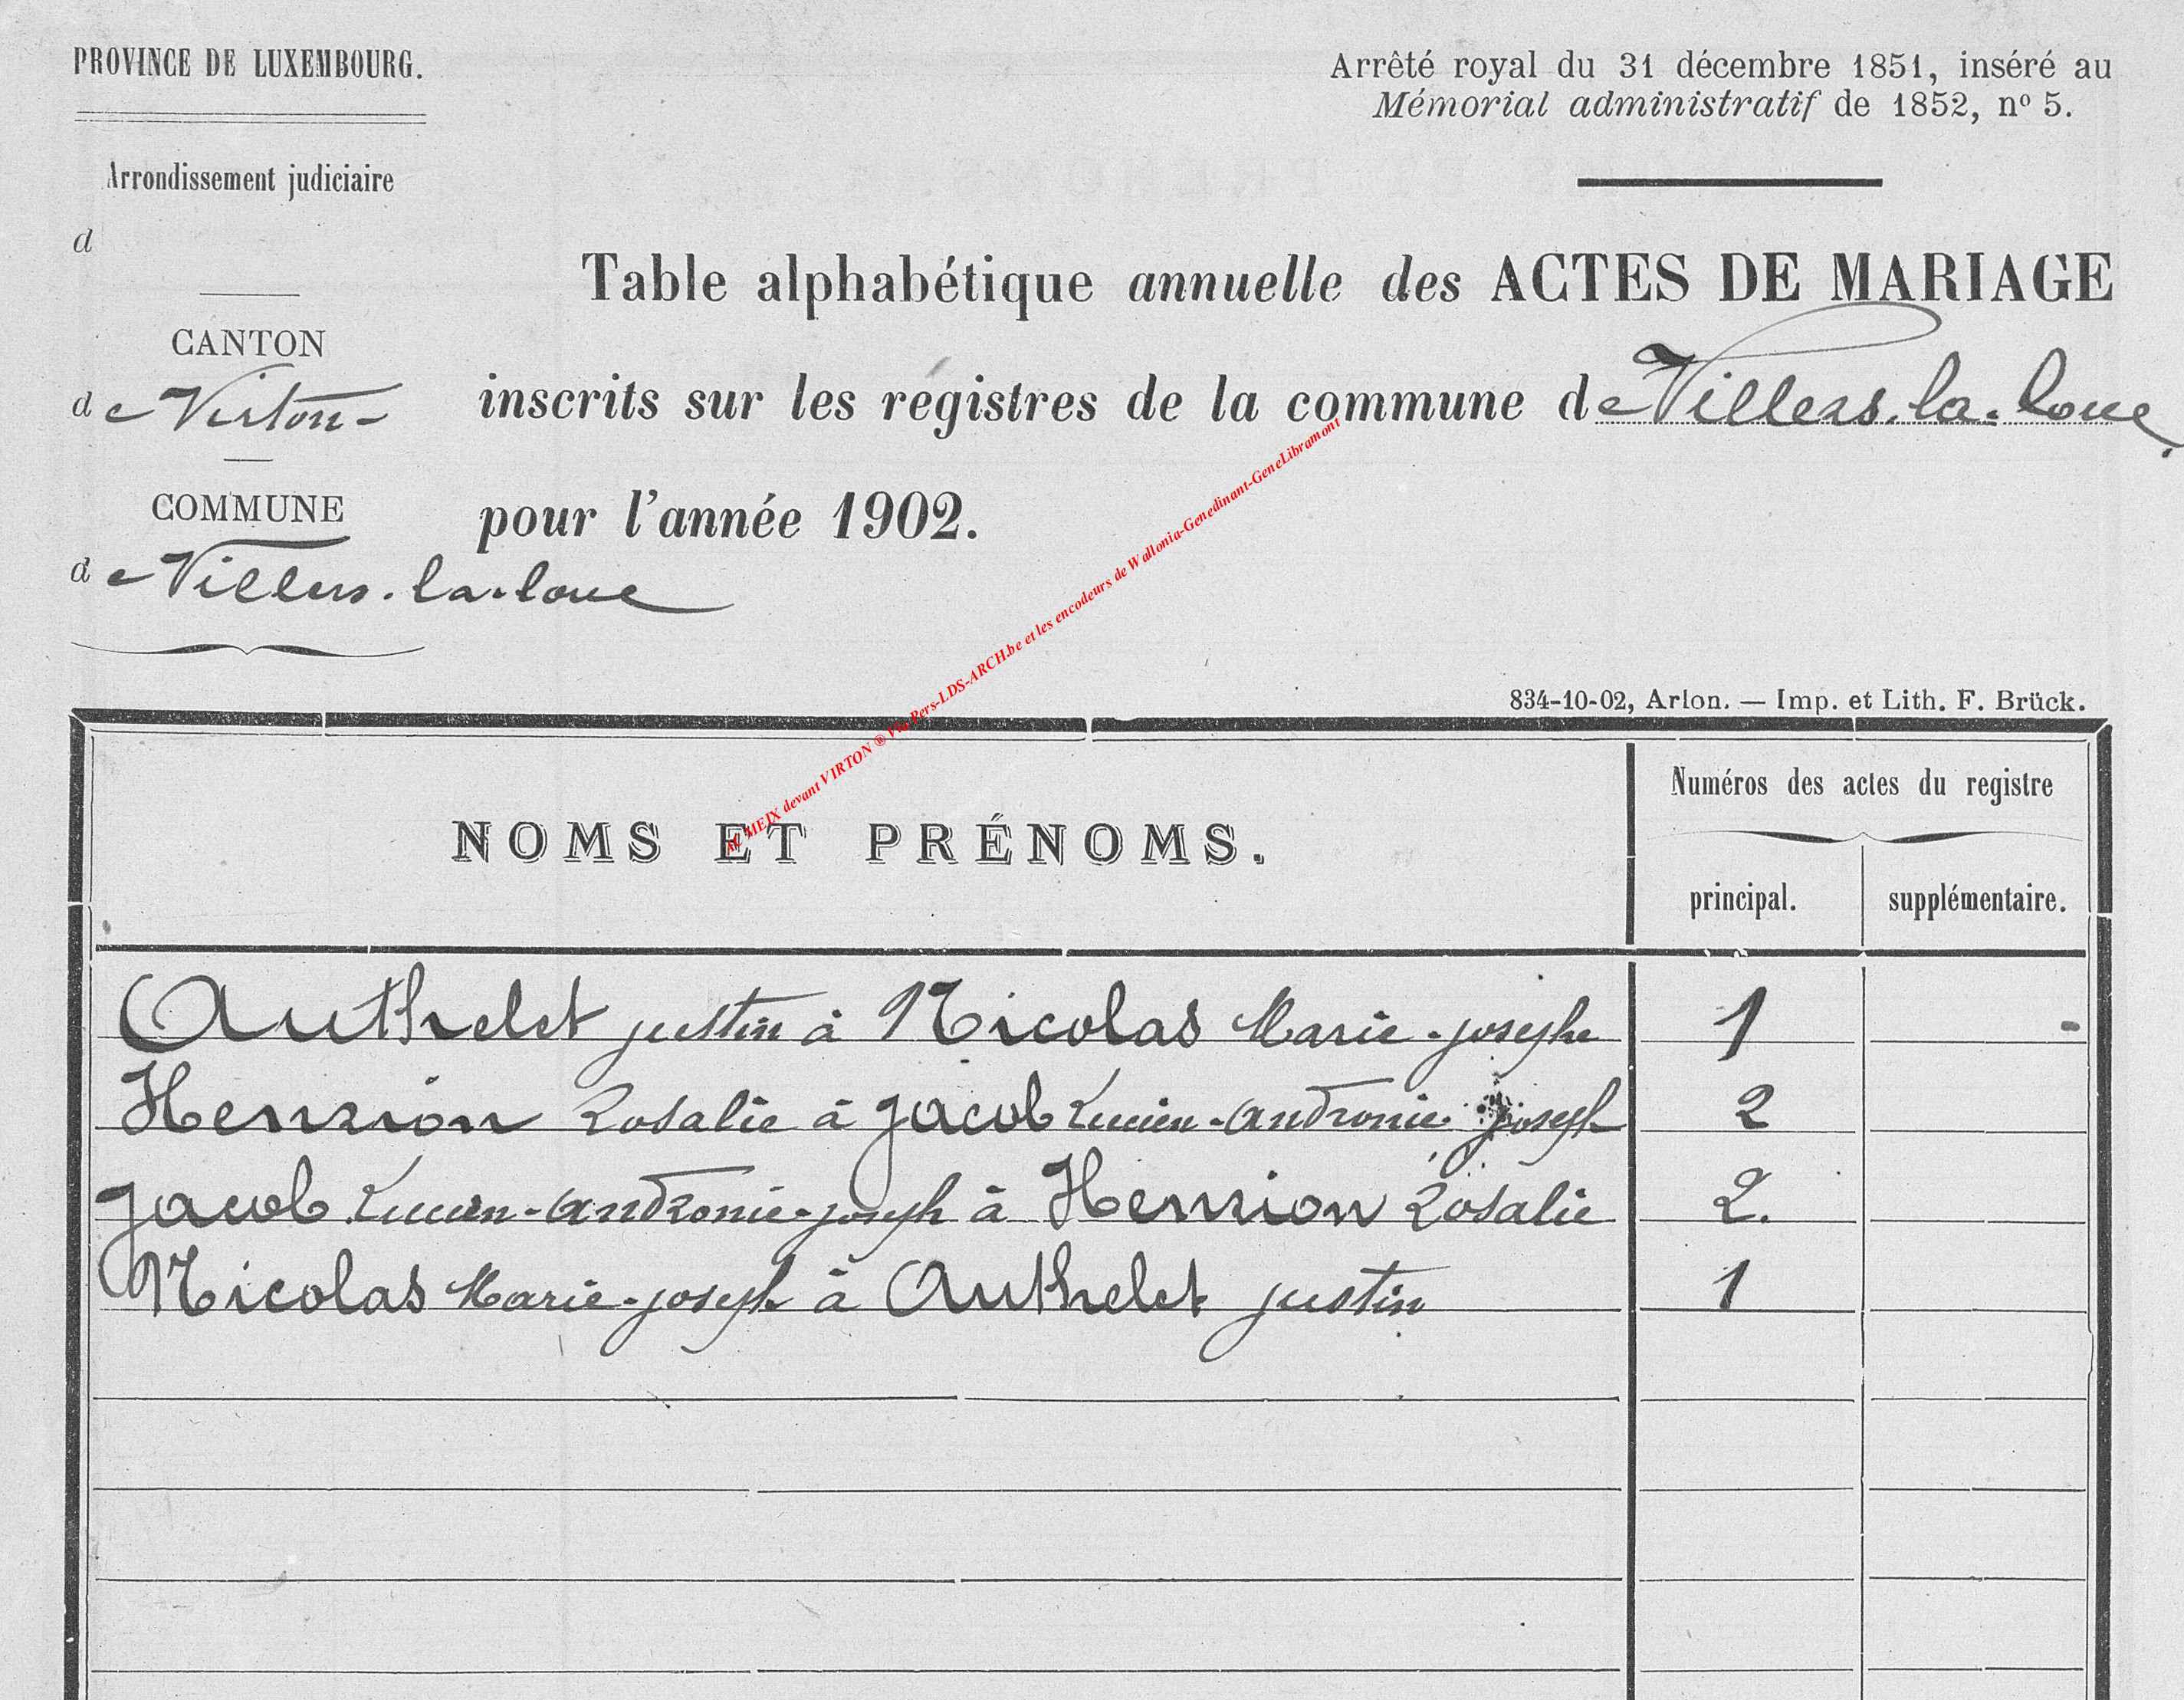 PROVINCE DE LUXEMBOURG.
Arrêté royal du 31 décembre 1851, inséré au
Mémorial administratif de 1852, nº 5.
Arrondissement judiciaire
d
Table alphabétique annuelle des ACTES DE MARIAGE
CANTON
de Virton-
inscrits sur les registres de la commune de Villers.la-loue.
COMMUNE
pour l'année 1902.
de Villers.la-loue
AC MEIX devant VIRTON ® Via Pers-LDS-ARCH.be et les encodeurs de Wallonia-Genedinant-GeneLibramont
834-10-02, Arlon. — Imp. et Lith. F. Brück.
NOMS ET PRÉNOMS.
Numéros des actes du registre
principal.
supplémentaire.
Authelet justin à Nicolas Marie-josephe 1
Henrion Rosalie à jacob Lucien-Andronic joseph 2
jacob Lucien-Andronic-joseph à Henrion Rosalie 2.
Nicolas Marie-joseph à Authelet justin 1